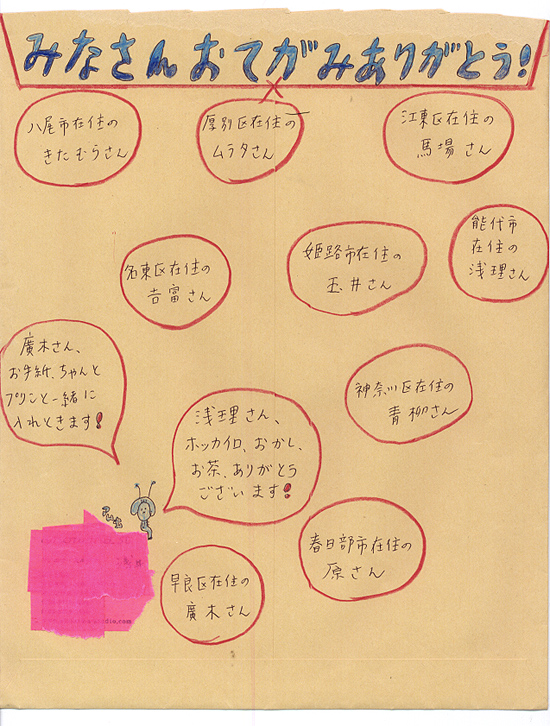 みなさんおてがみありがとう!
八尾市在住の
きたむらさん
厚別区在住の
ムラタさん
江東区在住の
馬場さん
能代市
在住の
浅理さん
名東区在住の
吉富さん
姫路市在住の
玉井さん
廣木さん、
お手紙、ちゃんと
プリンと一緒に
入れときます!
神奈川区在住の
青柳さん
浅理さん、
ホッカイロ、おかし、
お茶、ありがとう
ございます!
春日部市在住の
原さん
早良区在住の
廣木さん